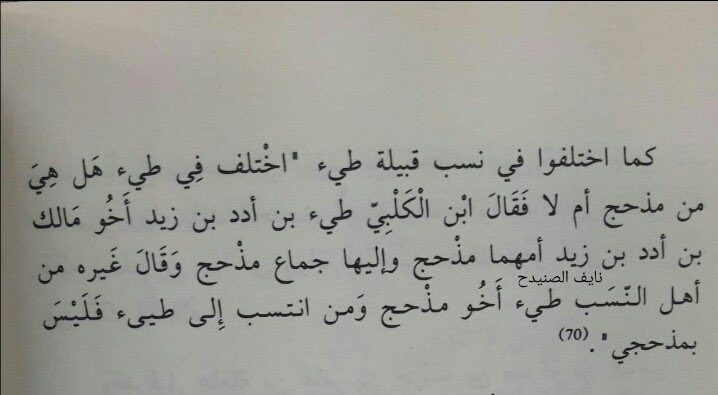 كما اختلفوا في نسب قبيلة طيء "اخْتلف فِي طيء هَل هِيَ
من مذحج أم لا فَقَالَ ابْن الْكَلْبِيّ طيء بن أدد بن زيد أَخُو مَالك
بن أدد بن زيد أمهما مذْحج وإليها جماع مذْحج وَقَالَ غَيره من
نايف الصنيدح
أهل النّسَب طيء أَخُو مذْحج وَمن انتسب إِلى طيىء فَلَيْسَ
بمذحجي".(70)